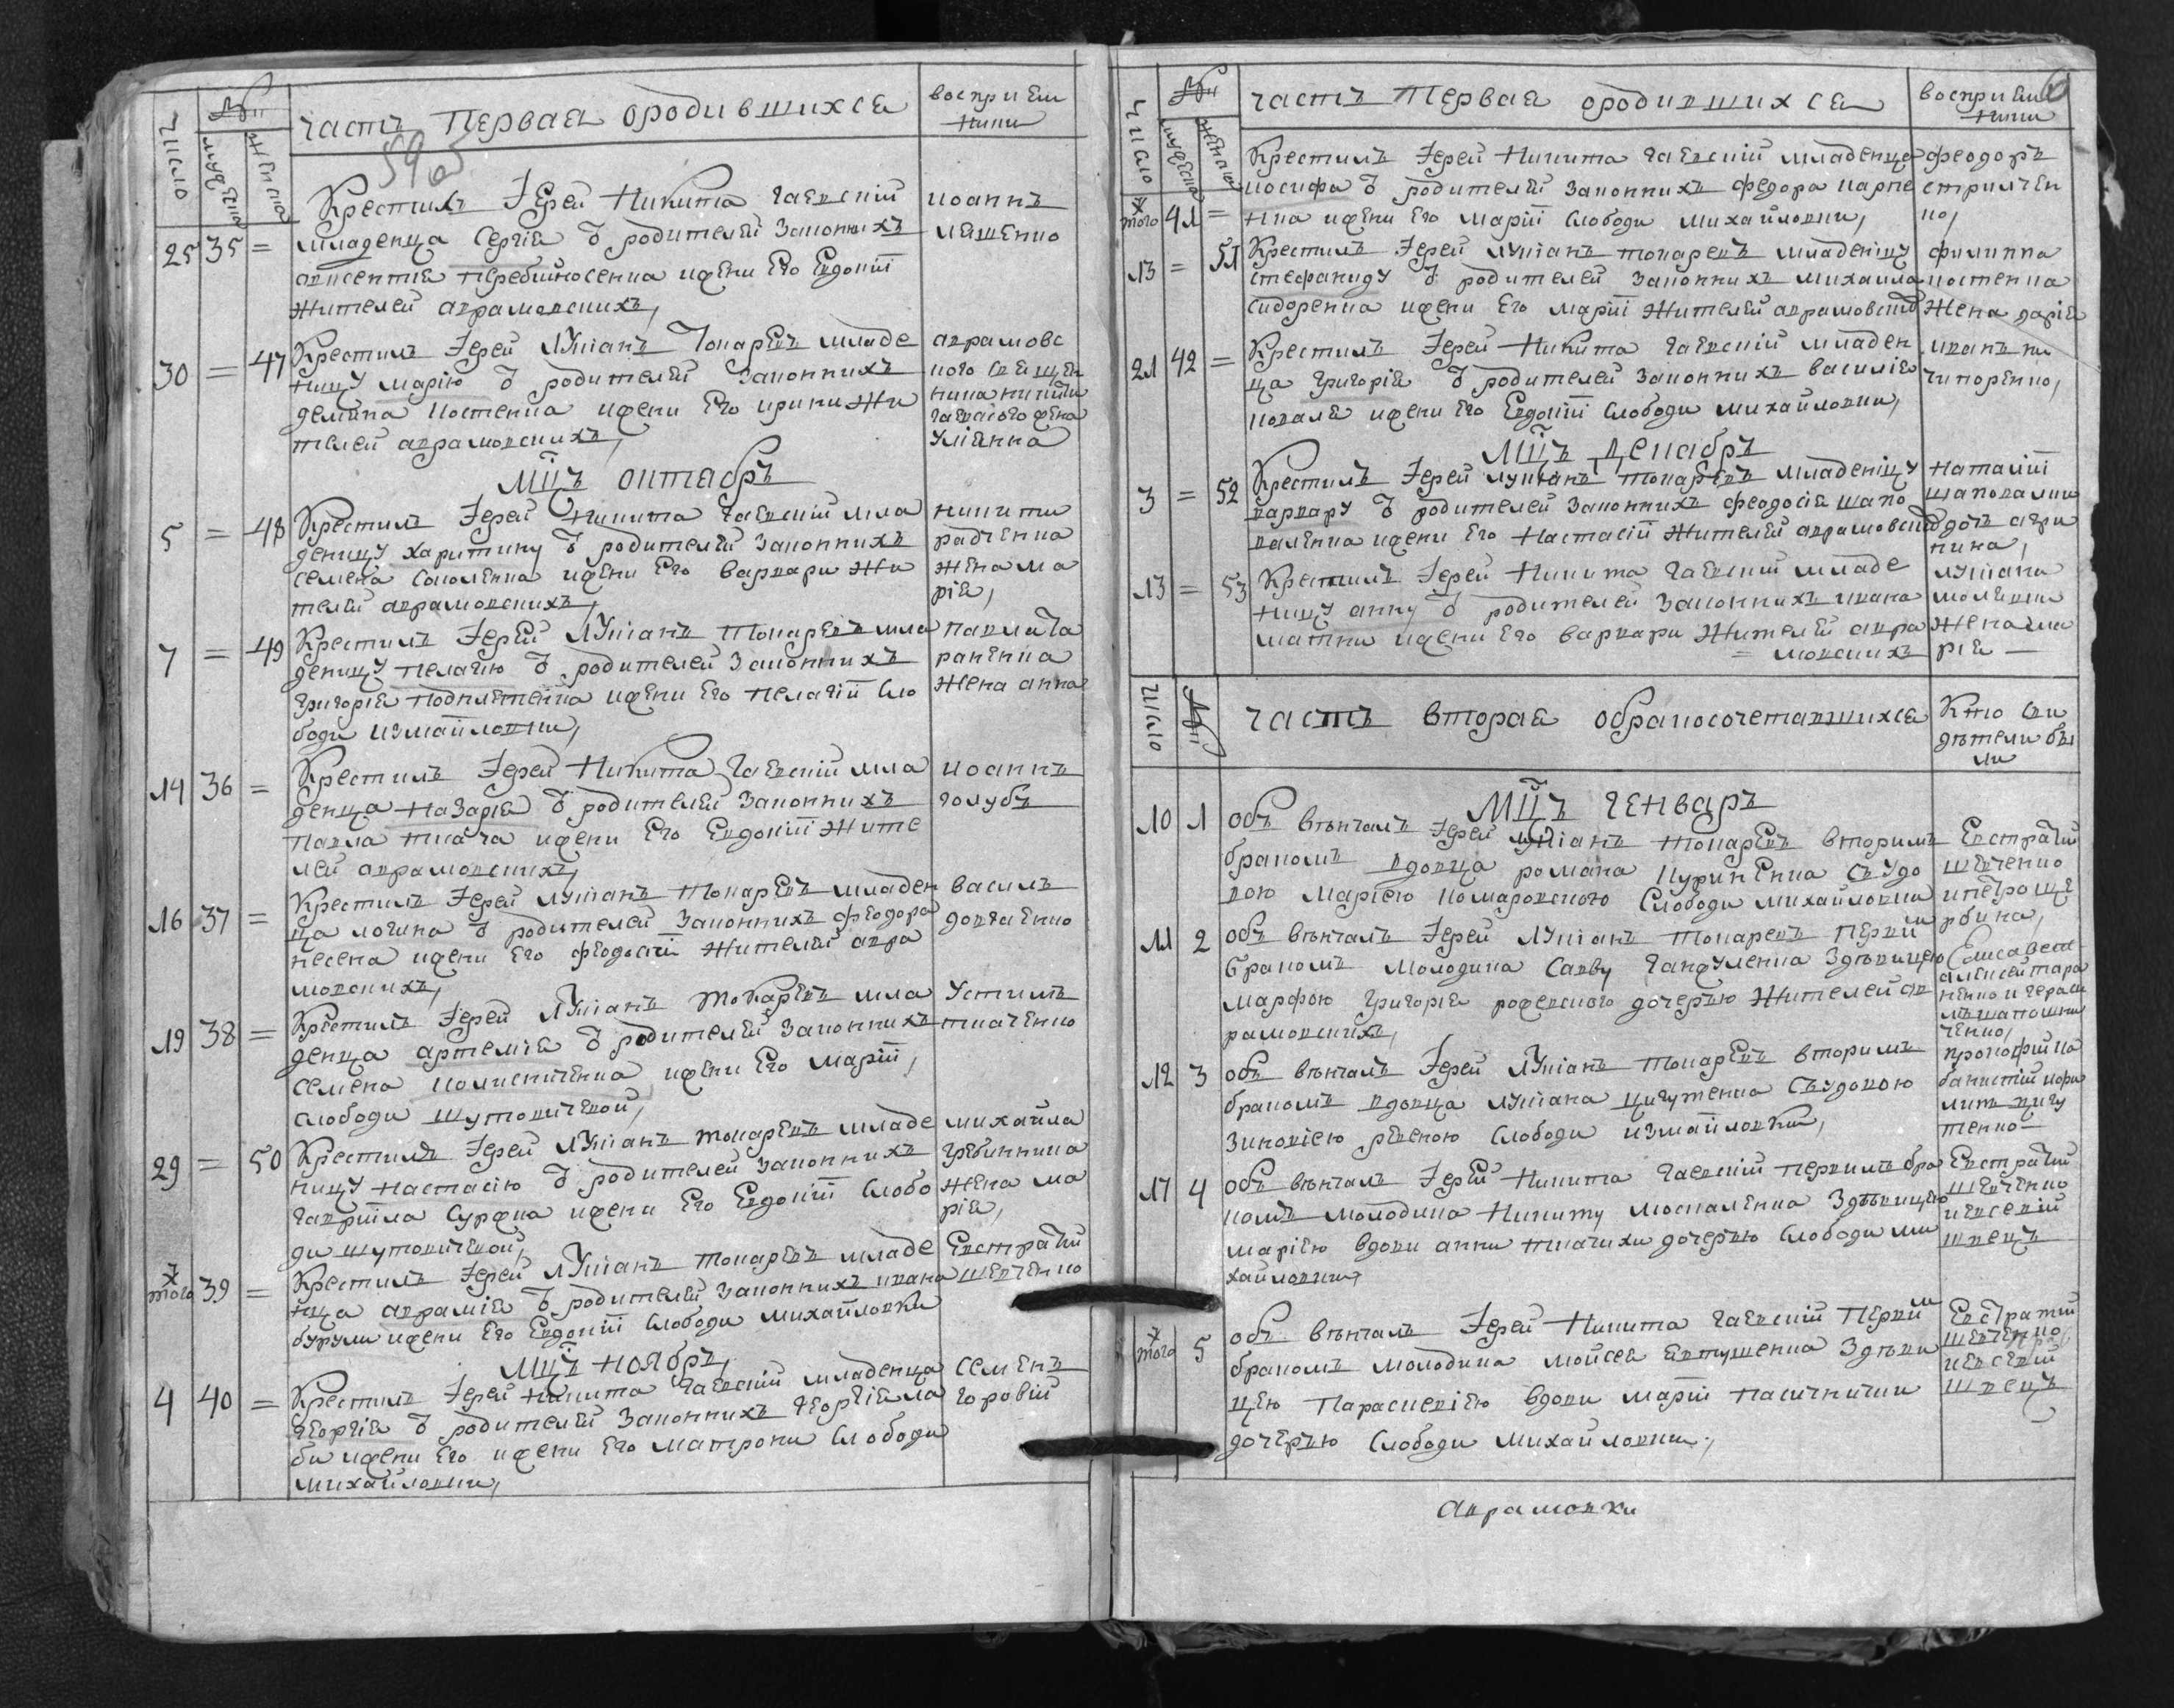 число
№
мужеска
женска
часть первая ородившихся
восприем
ники
Крестилъ Іерей Никита гаевскій
младенца Сергіа ѿ родителей законнихъ
авксентіа перебийносенка ижени Его Евдокіи
жителей аврамовскихъ,
25 35 =
иоаннъ
ляшенко
Крестилъ Іерей Лукіанъ Токаревъ младе
ницу марію ѿ родителей законнихъ
демяна костенка ижени Его ирини жи
телей аврамовскихъ,
30 = 47
аврамовс
кого священ
ника никити
гаевского жена
улианна
мцъ октабръ
Крестилъ Іерей Никита гаевскій мла
деницу харитину ѿ родителей законнихъ
семена соколенка ижени Его варвари жи
телей аврамовскихъ,
5 = 48
никити
радченка
жена ма
ріа,
Крестилъ Іерей Лукіанъ Токаревъ мла
деницу пелагію ѿ родителей законнихъ
григоріа подплетенка ижени Его пелагіи сло
боди измайловки,
7 = 49
павла га
раненка
жена анна
Крестилъ Іерей Никита гаевскій мла
денца назаріа ѿ родителей законнихъ
павла ткача ижени Его Евдокіи жите
лей аврамовскихъ,
14 36 =
иоаннъ
голубъ
Крестилъ Іерей лукіанъ Токаревъ младен
ца логина ѿ родителей законнихъ феодора
несена ижени Его феодосіи жителей авра
мовскихъ,
16 37 =
василъ
довгаенко
Крестилъ Іерей Лукіанъ Токаревъ мла
денца артеміа ѿ родителей законнихъ
семена колисниченка ижени Его Маріи,
слободи шутовичевой,
19 38 =
устимъ
ткаченко
Крестилъ Іерей Лукіанъ Токаревъ младе
ницу настасію ѿ родителей законнихъ
гавріила суржка ижени Его Евдокіи слобо
ди шутовичевой,
29 = 50
михайла
гребинника
жена ма
ріа,
Крестилъ Іерей Лукіанъ Токаревъ младе
нца авраміа ѿ родителей законнихъ ивана
бурули ижени Его Евдокіи слободи михайловки
того 39 =
Евстратій
шевченко
мцъ ноябръ,
Крестилъ Іерей Никита гаевскій младенца
георгіа ѿ родителей законнихъ георгіа ла
би ижени Его ижени Его матрони слободи
михайловки,
4 40 =
семенъ
горовій
число
№
мужеска
женска
часть Первая ородившихса
восприем
ники
Крестилъ Іерей Никита гаевскій младенца
иосифа ѿ родителей законнихъ федора карпе
нка ижени Его маріи слободи михайловки,
того 41 =
феодоръ
стрилчен
ко,
Крестилъ Іерей Лукіанъ токаревъ младеницу
стефаниду ѿ родителей законнихъ михаила
сидоренка ижени Его маріи жителей аврамовскихъ
13 = 51
филиппа
костенка
жена даріа
Крестилъ Іерей Никита гаевскій младен
ца григоріа ѿ родителей законнихъ василіа
ковала ижени Его Евдокіи слободи михайловки,
21 42 =
иванъ ни
чипоренко,
мцъ декабръ
Крестилъ Іерей лукіанъ токаревъ младеницу
варвару ѿ родителей законнихъ феодосіа шапо
валенка ижени Его настасіи жителей аврамовскихъ
3 = 52
наталіи
шаповалки
дочь агри
пина,
Крестилъ Іерей Никита гаевскій младе
ницу анну ѿ родителей законнихъ ивана
матки ижени Его варвари жителей авра
= мовскихъ
13 = 53
лукіана
жена ма
ріа —
число
№
часть вторая обракосочетавшихса
Кто сви
дѣтели бы
ли
мцъ генваръ
10 1
объ вѣнчалъ Іерей лукіанъ токаревъ вторимъ
бракомъ вдовца романа куриненка съ удо
вою Маріею комаровского слободи михайловки
Евстратій
шевченко
ипетро ще
рбина,
11 2
объ вѣнчалъ Іерей Лукіанъ токаревъ перви м
бракомъ молодика савву ганжуленка здѣвицею
марфою григоріа дочерью жителей ав
рамовскихъ,
Елисавет
алексей тара
ненко и гераси
мъ шапошни
ченко,
12 3
объ вѣнчалъ Іерей Лукіанъ токаревъ вторимъ
бракомъ вдовца лукіана цигутенка съ удовою
зиновіею ревкою слободи измайловки,
прокофій ка
лит цигу
тенко —
17 4
объ вѣнчалъ Іерей Никита гаевскій первимъ бра
комъ молодика никиту москаленка здѣвицею
маріею вдови анни ткачихи дочерью слободи ми
хайловки,
Евстратій
шевченко
иевсевій
швецъ
того 5
объ вѣнчалъ Іерей Никита гаевскій перви м
бракомъ молодика мойсея Евтушенка здѣви
цею Параскевіею вдови маріи пасичнички
дочерью слободи михайловки,
Евстратій
шевченко
иевсевій
швецъ
Аврамовки